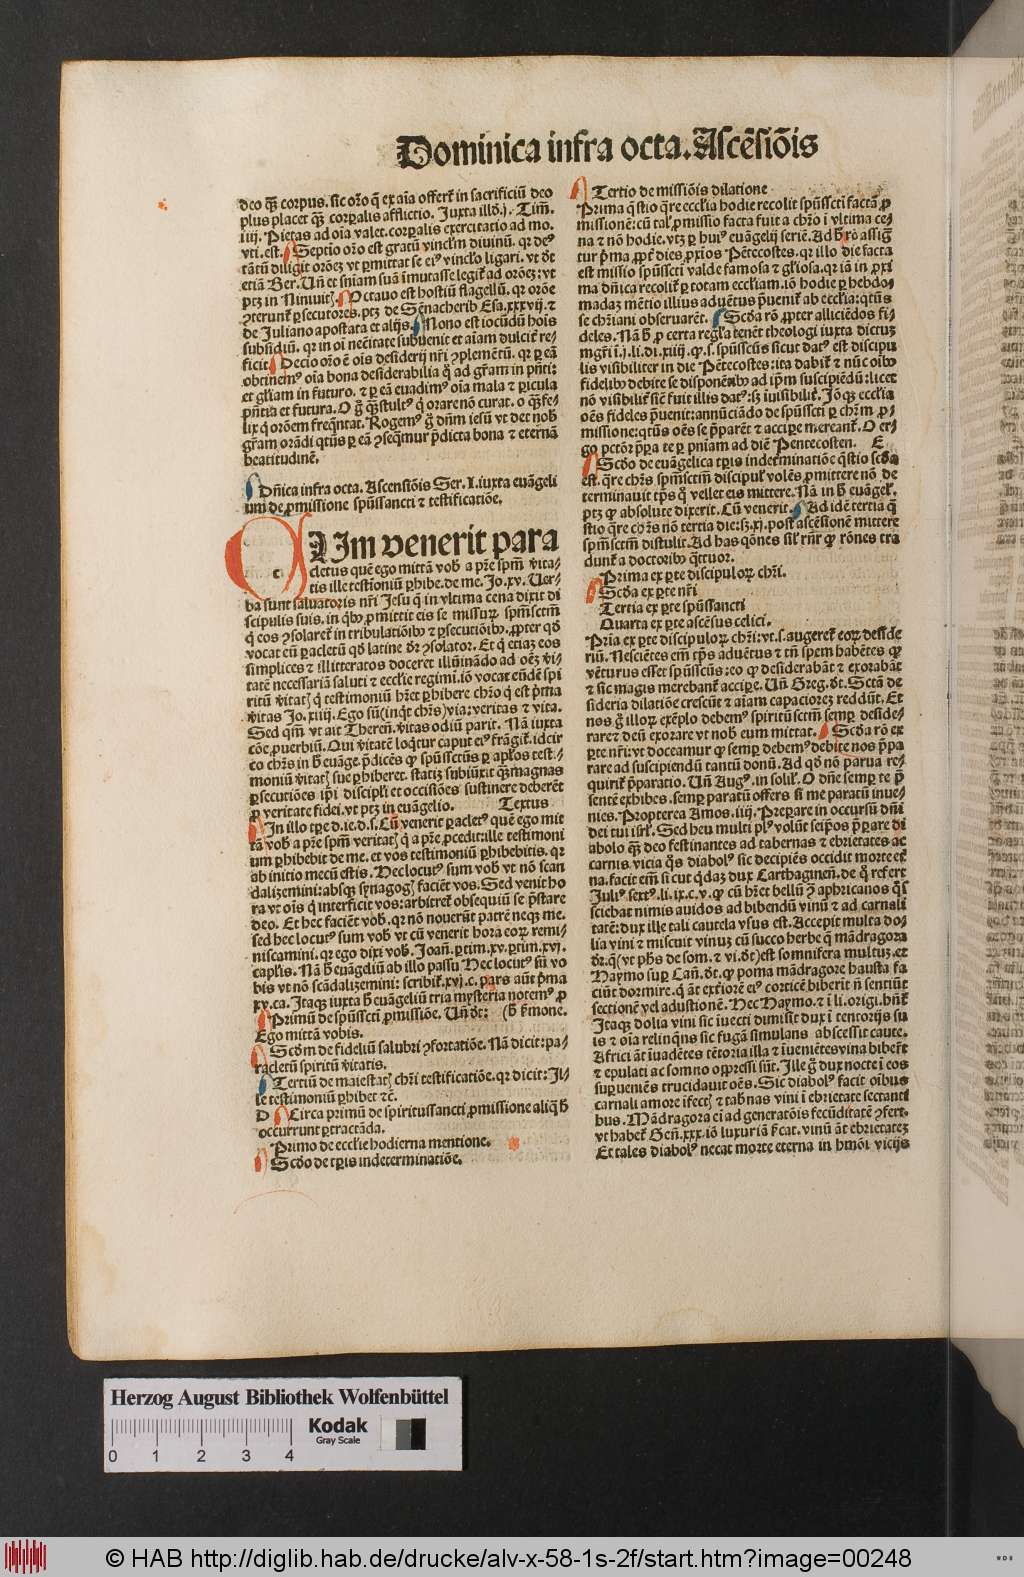 Dominica infra octa. Ascēsiōis
deo q̄ȝ corpus. sic or̄o q̄ ex aīa offert᷑ in sacrificiū deo
plus placet q̄ȝ corꝑalis afflictio. Juxta illd̄.j. Tim̄.
iiij. Pietas ad oīa valet. corꝑalis exercitatio ad mo.
vti. est. Septio or̄o est gratū vincl̄m diuinū. qꝛ deꝰ
tātū diligit or̄oēȝ vt ꝑmittat se eiꝰ vincl̄o ligari. vt d̄t
etiā Ber. Un̄ et sn̄iam suā īmutasse legit᷑ ad or̄oēȝ: vt
ptȝ in Niniuit̄. Octauo est hostiū flagellū. qꝛ or̄oē
ꝯterunt᷑ ꝑsecutores. ptȝ de Sēnacherib Esa. xxxvij. ⁊
de Juliano apostata et alijs. Nono est iocūdū hoīs
subsidiū. qꝛ in oī necītate subuenit et aīam dulcit᷑ re-
ficit. Decio or̄o ē oīs desiderij nr̄i ꝯplemētū. qꝛ ꝑ eā
obtinemꝰ oīa bona desiderabilia q̄ ad gr̄am in pn̄ti:
et gl̄iam in futuro. ⁊ ꝑ eā euadimꝰ oīa mala ⁊ ꝑicula
pn̄tia et futura. O g̊ q̄ȝ stultꝰ q̇ orare nō curat. o q̄ȝ fe-
lix q̇ or̄oēm freq̄ntat. Rogemꝰ g̊ dn̄m iesū vt det nob̄
gr̄am orādi q̄tūs ꝑ eā ꝯseq̄mur p̄dicta bona ⁊ eternā
beatitudinē.
Dn̄ica infra octa. Ascensiōis Ser. I. iuxta euāgeli
um de ꝓmissione spūssancti ⁊ testificatiōe.
c
UIm venerit para
cletus quē ego mittā vob̄ a pr̄e spm̄ vita-
tis ille testioniū ꝑhibe. de me. Jo. xv. Uer-
ba sunt saluatoris nr̄i Jesu q̇ in vltima cena dixit di
scipulis suis. in q̇bꝰ ꝓmittit eis se missurꝵ spm̄sctm̄
q̇ eos ꝯsolaret᷑ in tribulatiōibꝰ ⁊ ꝑsecutiōibꝰ, ꝓpter qd̄
vocat eū ꝑacletū qd̄ latine dr̄ ꝯsolator. Et q̇ etiaȝ eos
simplices ⁊ illitteratos doceret illūināndo ad oēȝ vi-
tatē necessariā saluti ⁊ ecclie regimi. iō vocat eūdē spi
ritū vitat̄ q̇ testimoniū hȝet ꝑhibere chr̄o q̇ est p̄ma
vitas Jo. xiiij. Ego sū(inq̇t chr̄s) via: veritas ⁊ vita.
Sed qm̄ vt ait Theren̄. vitas odiū parit. Nā iuxta
cōe ꝓuerbiū. Qui vitatē loq̇tur caput eiꝰ frāgit᷑. idcir
co chr̄s in h̄ euāge. p̄dicēs ꝙ spūssctūs ꝑ apl̄os testi-
moniū vitat̄ sue ꝑhiberet. statiȝ subiūxit q̄ȝ magnas
ꝑsecutiōes ip̄i discipl̄i et occisiōes sustinere deberēt
ꝓ veritate fidei. vt ptȝ in euāgelio. Textus
In illo tꝑe d. ie. d. s. Cū venerit ꝑacletꝰ quē ego mit
tā vob̄ a pr̄e spm̄ veritat̄ q̇ a pr̄e ꝓcedit: ille testimoni
um ꝑhibebit de me. et vos testimoniū ꝑhibebitis. qꝛ
ab initio mecū estis. Hec locutꝰ sum vob̄ vt nō scan
dalizemini: absqȝ synagoḡ faciēt vos. Sed venit ho
ra vt oīs q̇ interficit vos: arbitret᷑ obsequiū se p̄stare
deo. Et hec faciēt vob̄. qꝛ nō nouerūt patrē neqȝ me.
sed hec locutꝰ sum vob̄ vt cū venerit hora eoꝝ remi-
niscamini. qꝛ ego dixi vob̄. Joan̄. ꝑtim. xv. ꝑtim. xvj.
capl̄is. Nā h̄ euāgeliū ab illo passu Hec locutꝰ sū vo
bis vt nō scādalizemini: scribit᷑. xvj. c. pars aūt p̄ma
xv. ca. Itaqȝ iuxta h̄ euāgeliū tria mysteria notemꝰ ꝓ
Primū de spūsscti ꝓmissiōe. Un̄ d̄t: (h̄ ẜmone.
Ego mittā vobis.
Scdm de fideliū salubri ꝯfortatiōe. Nā dicit: pa-
racletū spiritū vitatis.
Tertiū de maiestat̄ chr̄i testificatiōe. qꝛ dicit: Il-
le testimoniū ꝑhibet ⁊c̄.
D Circa primū de spiritussancti ꝓmissione aliq̄ h̄
occurrunt ꝑtractāda.
Primo de ecclie hodierna mentione.
Scd̄o de tꝑis indeterminatiōe.
Tertio de missiōis dilatione
Prima q̄stio q̄re eccl̄ia hodie recolit spūsscti factā ꝓ
missionē: cū tal̄ ꝓmissio facta fuit a chr̄o ī vltima ce-
na ⁊ nō hodie. vtȝ ꝑ huiꝰ euāgelij seriē. Ad h̄ rō assiḡ
tur p̄ma ꝓpt̄ dies ꝓxīos Pētecostes. qꝛ illo die facta
est missio spūsscti valde famosa ⁊ gl̄iosa. qꝛ iā in ꝓxi
ma dn̄ica recolit᷑ ꝑ totam eccl̄iam. iō hodie ꝑ hebdo-
madaȝ mētio illius aduētus p̄uenit᷑ ab eccl̄ia: q̄tūs
se chr̄iani obseruarēt. Scd̄a rō ꝓpter alliciēdos fi-
deles. Nā h̄ ꝓ certa regl̄a tenēt theologi iuxta dictuȝ
mgr̄i ī.j. li. di. xiiij. ꝙ. s. spūsscūs sicut datꝰ est discipu
lis visibiliter in die Pētecostes: ita dabit᷑ ⁊ nūc oībꝰ
fidelibꝰ debite se disponētibꝰ ad ip̄m suscipiēdū: licet
nō visibilit᷑ sic̄ fuit illis datꝰ: sȝ īuisibilit᷑. Iōqȝ eccl̄ia
oēs fideles p̄uenit: annūciādo de spūsscti ꝑ chr̄m ꝓ-
missione: q̄tūs oēs se p̄parēt ⁊ accipe mereant᷑. O er-
go pctōr p̄pra te ꝑ pn̄iam ad diē Pentecosten. E
Scd̄o de euāgelica tꝑis indeterminatiōe q̄stio scd̄a
est. q̄re chr̄s spm̄sctm̄ discipul̄ volēs ꝓmittere nō de
terminauit tp̄s q̄ vellet eis mittere. Nā in h̄ euāgel̄.
ptȝ ꝙ absolute dixerit. Cū venerit. Ad idē tertia q̄
stio q̄re chr̄s nō tertia die: sȝ. xj. post ascēsionē mittere
spm̄sctm̄ distulit. Ad has qōnes sil̄ rn̄t ꝙ rōnes tra
dunt᷑ a doctoribꝰ q̄ttuor.
Prima ex ꝑte discipuloꝝ chr̄i.
Scd̄a ex ꝑte nr̄i
Tertia ex ꝑte spūssancti
Quarta ex ꝑte ascēsus celici.
Pria ex ꝑte discipuloꝝ chr̄i: vt. s. augeret᷑ eoꝝ desīde
riū. Nescientes em̄ tp̄s aduētus ⁊ tn̄ spem habētes ꝙ
vēturus esset spūsscūs: eo ꝙ desiderabāt ⁊ exorabāt
⁊ sic magis merebant᷑ accipe. Un̄ Greg. d̄t. Sctā de
sideria dilatiōe crescūt ⁊ aīam capacioreȝ reddūt. Et
nos g̊ illoꝝ exēplo debemꝰ spiritūsctm̄ semꝑ deside-
rare ⁊ deū exorare vt nob̄ eum mittat. Scd̄a rō ex
ꝑte nr̄i: vt doceamur ꝙ semꝑ debemꝰ debite nos p̄pa
rare ad suscipiendū tantū donū. Ad qd̄ nō parua re-
quirit᷑ p̄paratio. Un̄ Augꝰ. in solil̄. O dn̄e semꝑ te p̄
sentē exhibes. semꝑ paratū offers si me paratū inue-
nies. Propterea Amos. iiij. Preꝑare in occursū dn̄i
dei tui isr̄l. Sed heu multi plꝰ volūt seip̄os p̄pare di
abolo q̄ȝ deo festinantes ad tabernas ⁊ ebrietates ac̄
carnis. vicia q̇s diabolꝰ sic decipiēs occidit morte et᷑
na. facit em̄ sicut q̇daȝ dux Carthaginen̄. de q̇ refert
Juliꝰ sextꝰ. li. ix. c. v. ꝙ cū hȝet bellū ꝯ̄ aphricanos q̇s
sciebat nimis auidos ad bibendū vinū ⁊ ad carnali
tatē: dux ille tali cautela vsus est. Accepit multa do-
lia vini ⁊ miscuit vinuȝ cū succo herbe q̄ mādragora
dr̄. q̄(vt ph̄s de som. ⁊ vi. d̄t) est somnifera multuȝ. et
Haymo suꝑ Can̄. d̄t. ꝙ poma mādragore hausta fa
ciūt dormire. q̇ āt exꝑiorē eiꝰ corticē biberit n̄ sentiūt
sectionē vel adustionē. Hec Haymo. ⁊ ī li. origi. hn̄t᷑
Itaqȝ dolia vini sic iuecti dimisit dux ī tentorijs su
is ⁊ oīa relinq̄ns sic fugā simulans abscessit caute.
Africi āt īuadētes tētoria illa ⁊ īueniētes vina biber̄t
⁊ epulati ac somno oppressi sūt. Ille g̊ dux nocte ī eos
suꝑueniēs trucidauit oēs. Sic diabolꝰ facit oībus
carnali amore ifect̄ ⁊ tab̄nas vini ī ebrietate sectanti
bus. Mādragora ei ad generatōis fecūditatē ꝯfert.
vt habet᷑ Gen̄. xxx. iō luxuriā ẜcat. vinū āt ebrietateȝ
Et tales diabolꝰ necat morte eterna in hmōi vicijs
Herzog August Bibliothek Wolfenbüttel
Kodak
Gray Scale
0 1 2 3 4
© HAB http://diglib.hab.de/drucke/alv-x-58-1s-2f/start.htm?image=00248